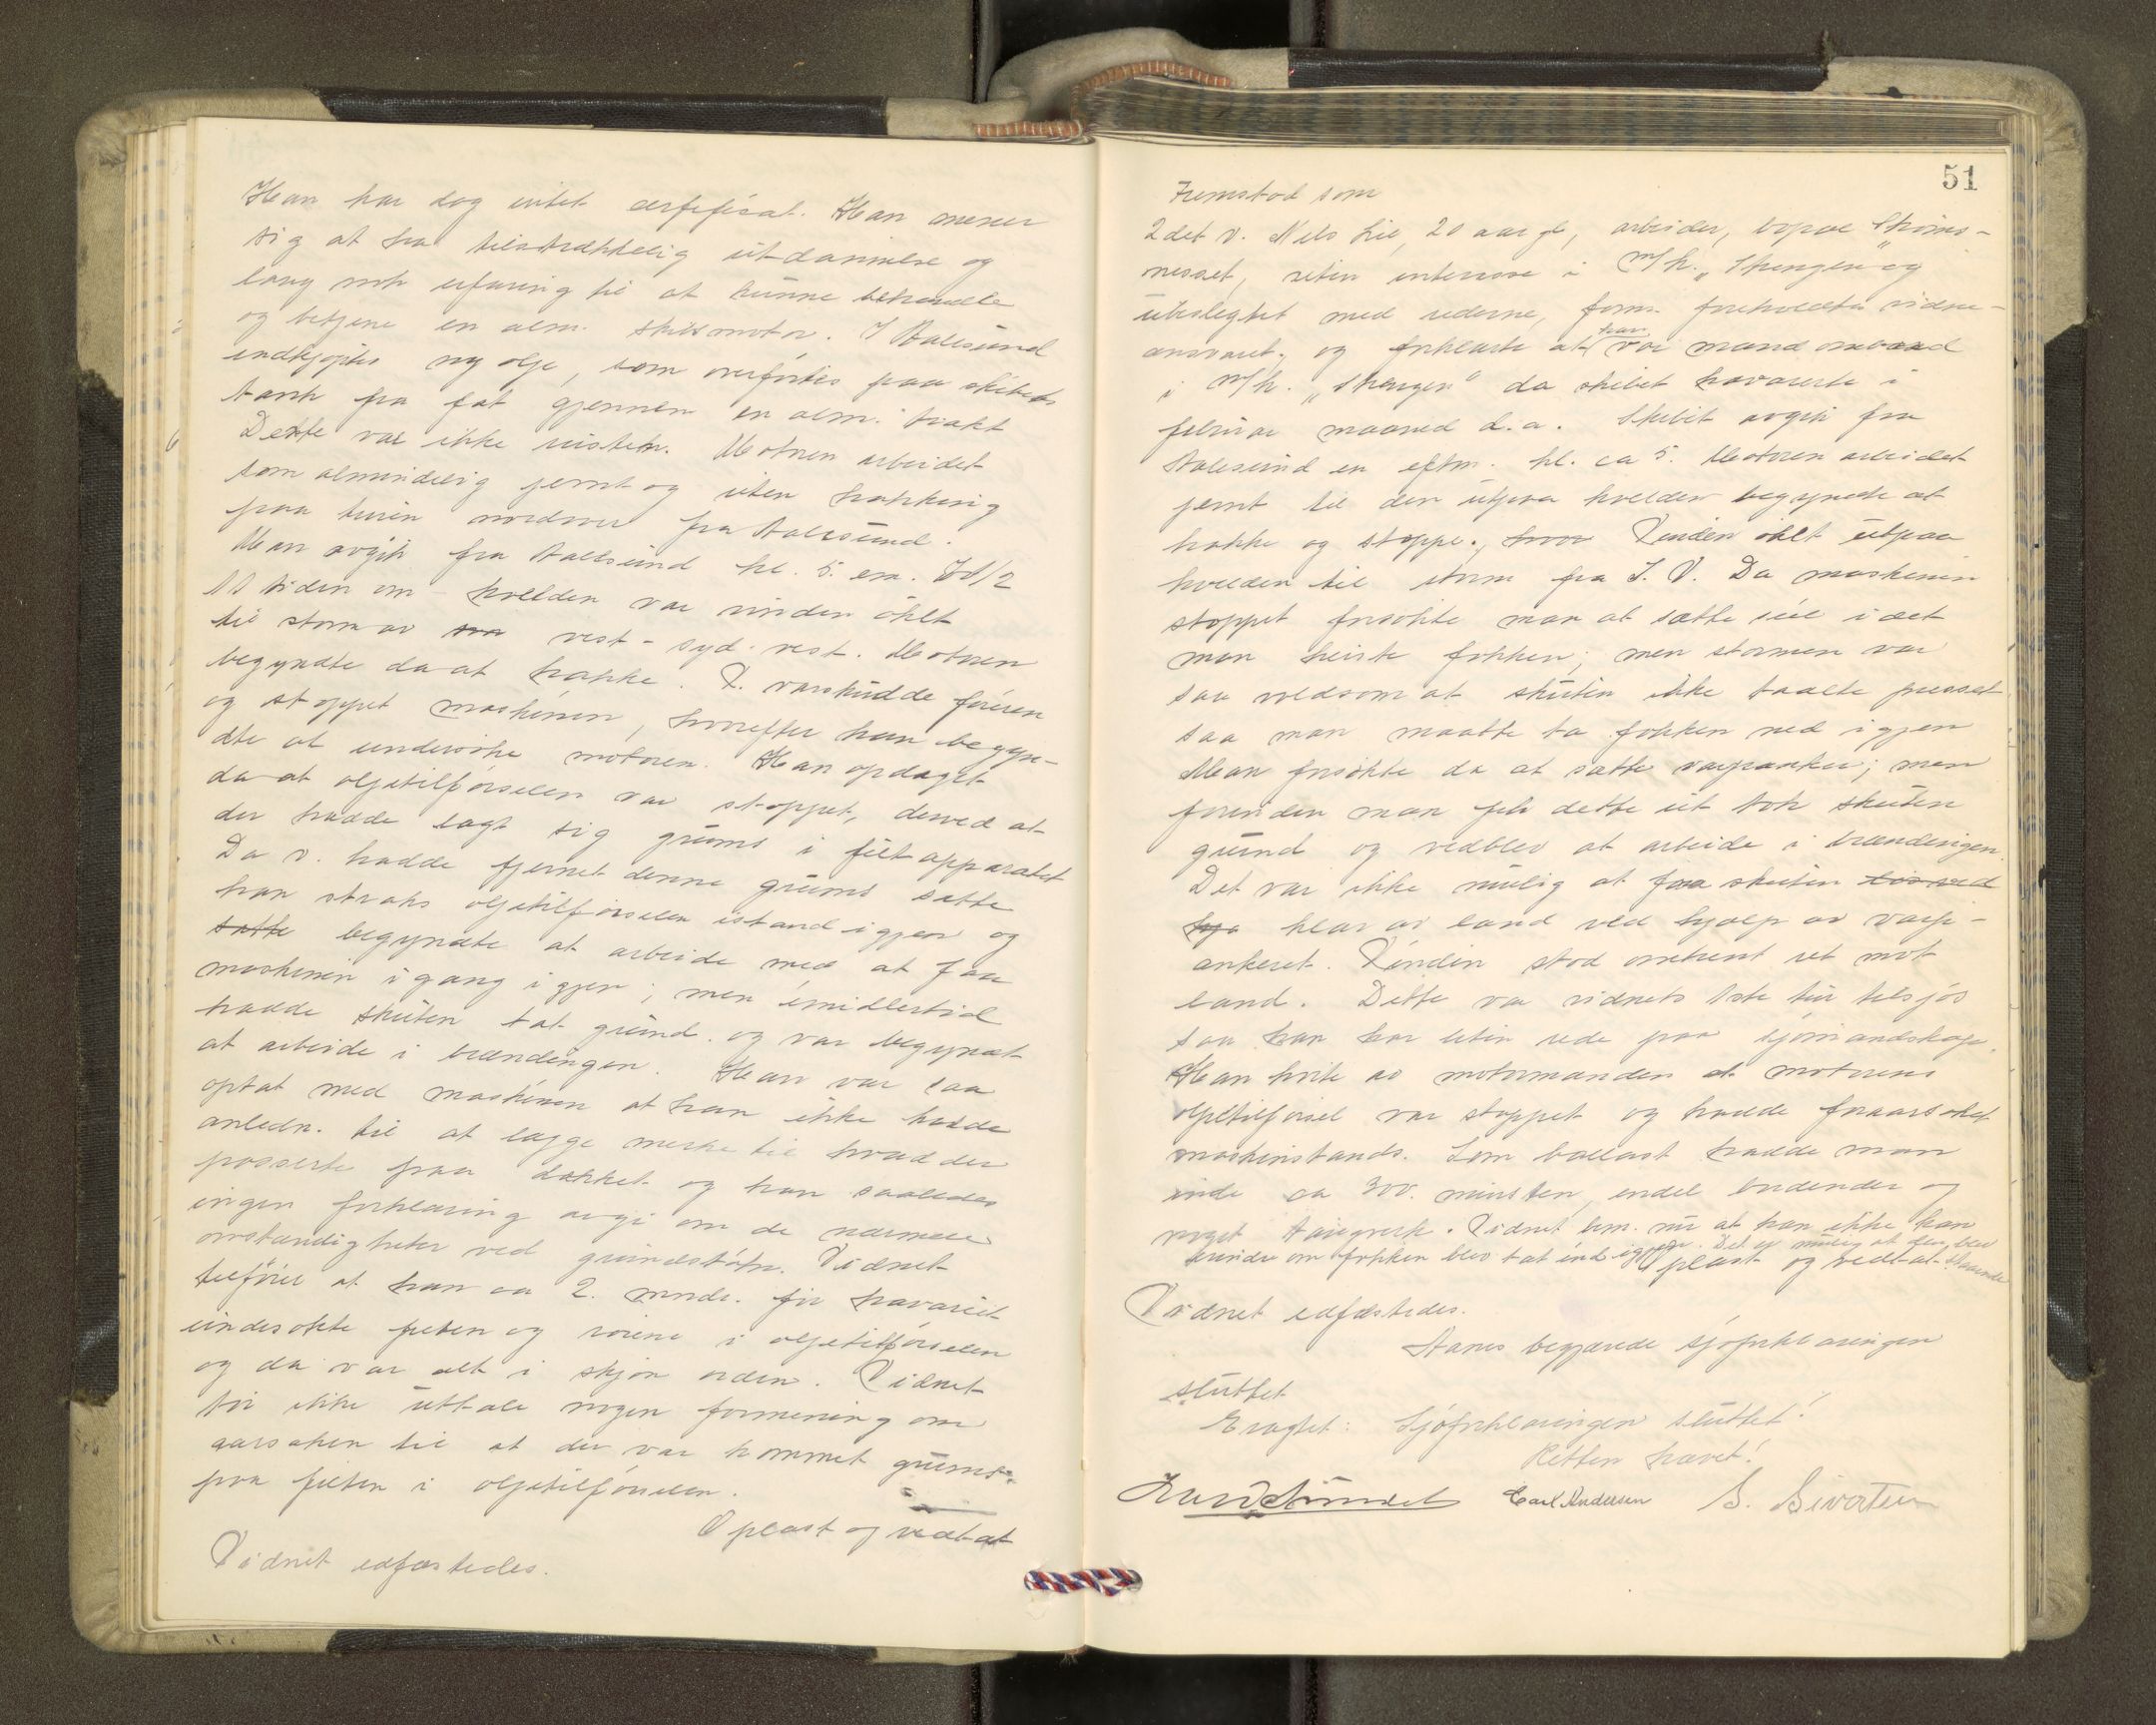 Han har dog intet certifisat. Han mener
sig at ha tilstrækkelig utdannelse og
lang nok erfaring til at kunne behandle
og betjene en alm. skibsmotor. I Aalesund
indkjøptes ny olje, som overførtes paa skibets
tank fra fat gjennem en alm. trakt
Dette var ikke rusten. Motoren arbeidet
som almindelig jevnt og uten hakking
paa turen nordover fra Aalesund.
Man avgik fra Aalesund kl. 5. em. Ved 1/2
11 tiden om kvelden var vinden øket
til storm av vest-syd-vest. Motoren
begyndte da at hakke. V. varskudde føreren
og stoppet maskinen, hvorefter han begyn-
dte at undersøke motoren. Han opdaget
da at oljetilførselen var stoppet, derved at
der hadde lagt sig grums i filtapparatet
Da v. hadde fjernet denne grums satte
han straks oljetilførselen istand igjen og
satte begyndte at arbeide med at faa
maskinen igang igjen; men imidlertid
hadde skuten tat grund og var begyndt
at arbeide i brændingen. Han var saa
optat med maskinen at han ikke hadde
anledn. til at lægge merke til hvad der
passerte paa dækket og kan saaledes
ingen forklaring avgi om de nærmere
omstændigheter ved grundstøtn. Vidnet
tilføier at han ca 2. mndr. før havariet
undersøkte filten og rørene i oljetilførselen
og da var alt i skjøn orden. Vidnet
tør ikke uttale nogen formening om
aarsaken til at der var kommet grums
paa filten i oljetilførselen.
Oplæst og vedtat
Vidnet edfæstedes.
51
Fremstod som
2det v. Nils Lie, 20 aar gl, arbeider, bopæl
nesset, uten interesse i M/k. "Skengen" og
ubeslegtet med rederne, form. foreholdtes vidne-
ansvaret, og forklarte at han var mand ombord
i M/k. "Skengen" da skibet havarerte i
februar maaned d.a. Skibet avgik fra
Aalesund en eftm. kl. ca 5. Motoren arbeidet
jevnt til den utpaa kvelden begyndte at
hakke og stoppe. Vinden øket utpaa
kvelden til storm fra S.V. Da maskinen
stoppet forsøkte man at sætte seil i det
man heiste fokken; men stormen var
saa voldsom at skuten ikke taalte presset
saa man maatte ta fokken ned igjen
Man forsøkte da at sætte varpanker; men
forinden man fik dette ut tok skuten
grund og vedblev at arbeide i brændingen.
Det var ikke mulig at faa skuten
klar av land ved hjælp av varp-
ankeret. Vinden stod omtrent ret mot
land. Dette var vidnets 1ste tur tilsjøs
saa han har liten rede paa sjømandskap.
Han hørte av motormanden at motorens
oljetilførsel var stoppet og hadde foraarsaket
maskinstands. Som ballast hadde man
inde ca 300. minsten, endel
noget taugverk. Vidnet bem. nu at han ikke kan
erindre om fokken blev tat ind igjen. Det er mulig at den blev
staaende
Oplæst og vedtat
Vidnet edfæstedes.
Aarnes begjærede sjøforklaringen
sluttet
Eragtet: Sjøforklaringen sluttet!
Retten hævet!
Carl Andersen S. Sivertsen